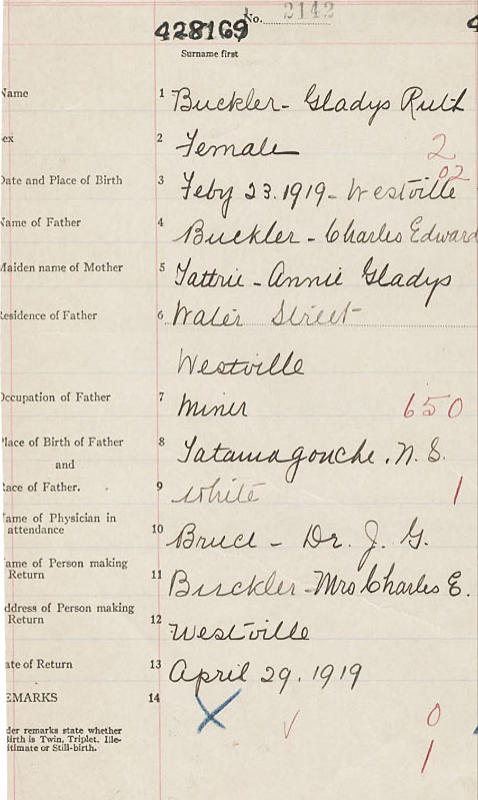 No. 2142
428169
Surname first
Name 1 Buckler - Gladys Ruth
Sex 2 Female 2
02
Date and Place of Birth 3 Feby 23. 1919 - Westville
Name of Father 4 Buckler - Charles Edward
Maiden name of Mother 5 Tattrie - Annie Gladys
Residence of Father 6 Water Street
Westville
Occupation of Father 7 Miner 650
Place of Birth of Father 8 Tatamagouche, N. S.
and
Race of Father. 9 White 1
Name of Physician in
attendance 10 Bruce - Dr. J. G.
Name of Person making
Return 11 Buckler - Mrs Charles E.
Address of Person making
Return 12 Westville
Date of Return 13 April 29. 1919
REMARKS 14
0
Under remarks state whether
Birth is Twin, Triplet, Ille-
gitimate or Still-birth.
1